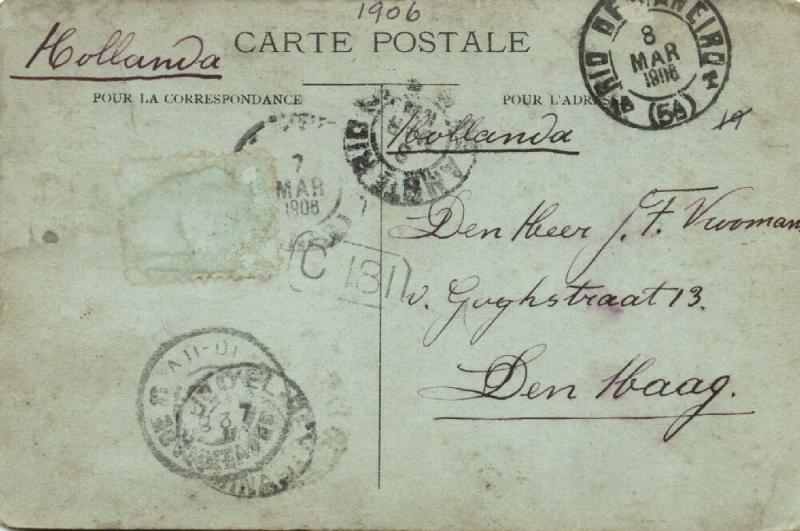 1906
Hollanda
CARTE POSTALE
POUR LA CORRESPONDANCE
POUR L'ADRES
RIO DE JANEIRO
8
MAR
1906
(5ª)
Hollanda
7
MAR
1906
C 181
Den Heer J. F. Vrooman
v. Goghstraat 13.
Den Haag.